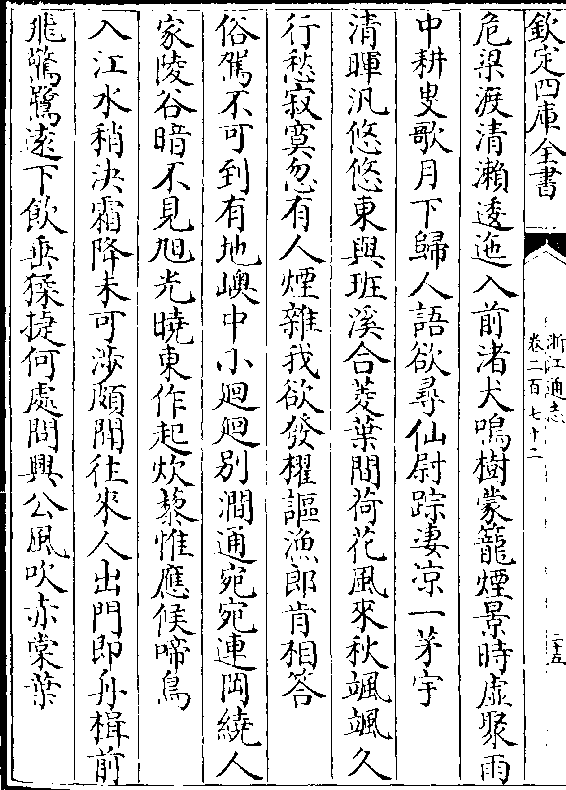 欽定四庫全書
浙江通志
卷二百七十二
二十五
危梁渡清瀨逶迤入前渚犬鳴樹蒙籠煙景時虛聚雨
中耕叟歌月下歸人語欲尋仙尉踪淒涼一茅宇
清暉汎悠悠東與班溪合菱葉間荷花風來秋颯颯久
行愁寂寞忽有人煙雜我欲發櫂謳漁郎肯相答
俗駕不可到有地嶼中小廻廻别澗通宛宛連岡繞人
家陵谷暗不見旭光曉東作起炊藜惟應候啼鳥
入江水稍決霜降未可涉頗聞往來人出門即舟楫前
飛驚鷺遠下飲垂猱捷何處問興公風吹赤棠葉